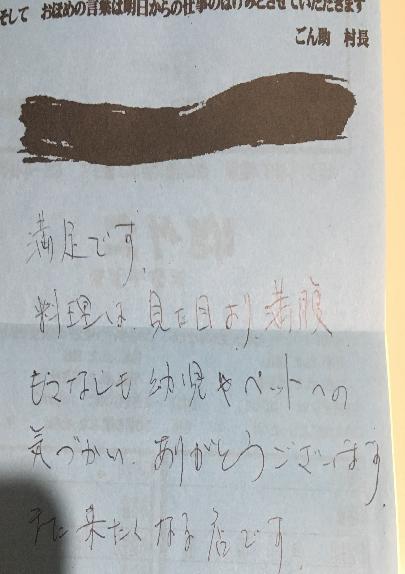 そして おほめの言葉は明日からの仕事のはげみとさせていただきます
ごん助 村長
満足です。
料理は、見た目より、満腹
もてなしも 幼児やペットへの
気づかい、ありがとうございます。
また来たくなる店です。